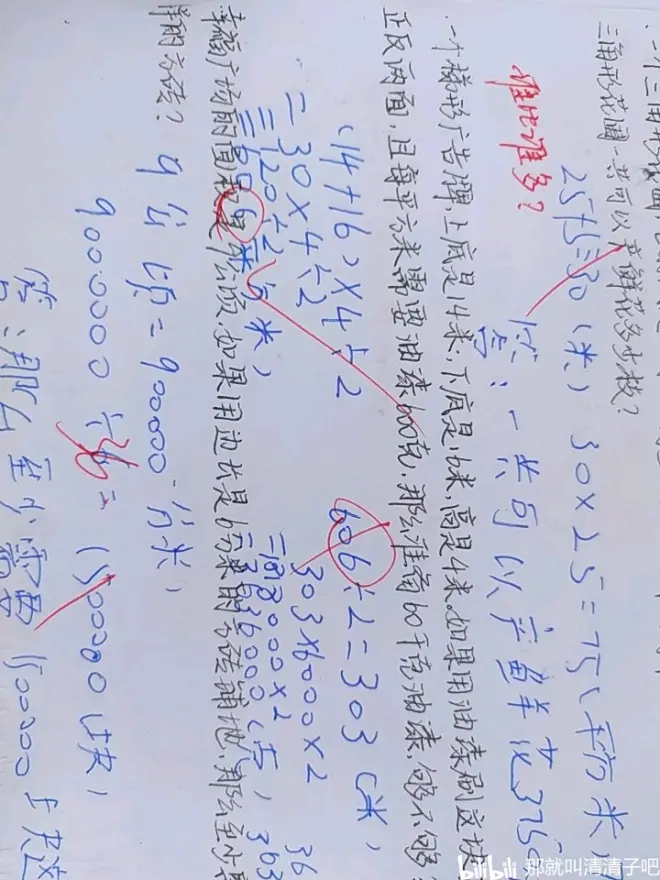 三角形花圃一共可以产鲜花多少枝？
谁比谁多？
25+5=30(米) 30×25=75(平方米)
答：一共可以产鲜花375
一个梯形广告牌，上底是14米，下底是16米，高是4米。如果用油漆刷这块
正反两面，且每平方米需要油漆600克，那么准备60千克油漆，够不够
(14+16)×4÷2
=30×4÷2
=120÷2
606÷2=303(米)
303×6000×2
幸福广场的面积是9公顷，如果用边长是6分米的方砖铺地，那么至少需
样的方砖？
9公顷=900000分米
9000000÷36=1500000(块)
答：那么至少需要1500000块这
bilibili 那就叫清清子吧